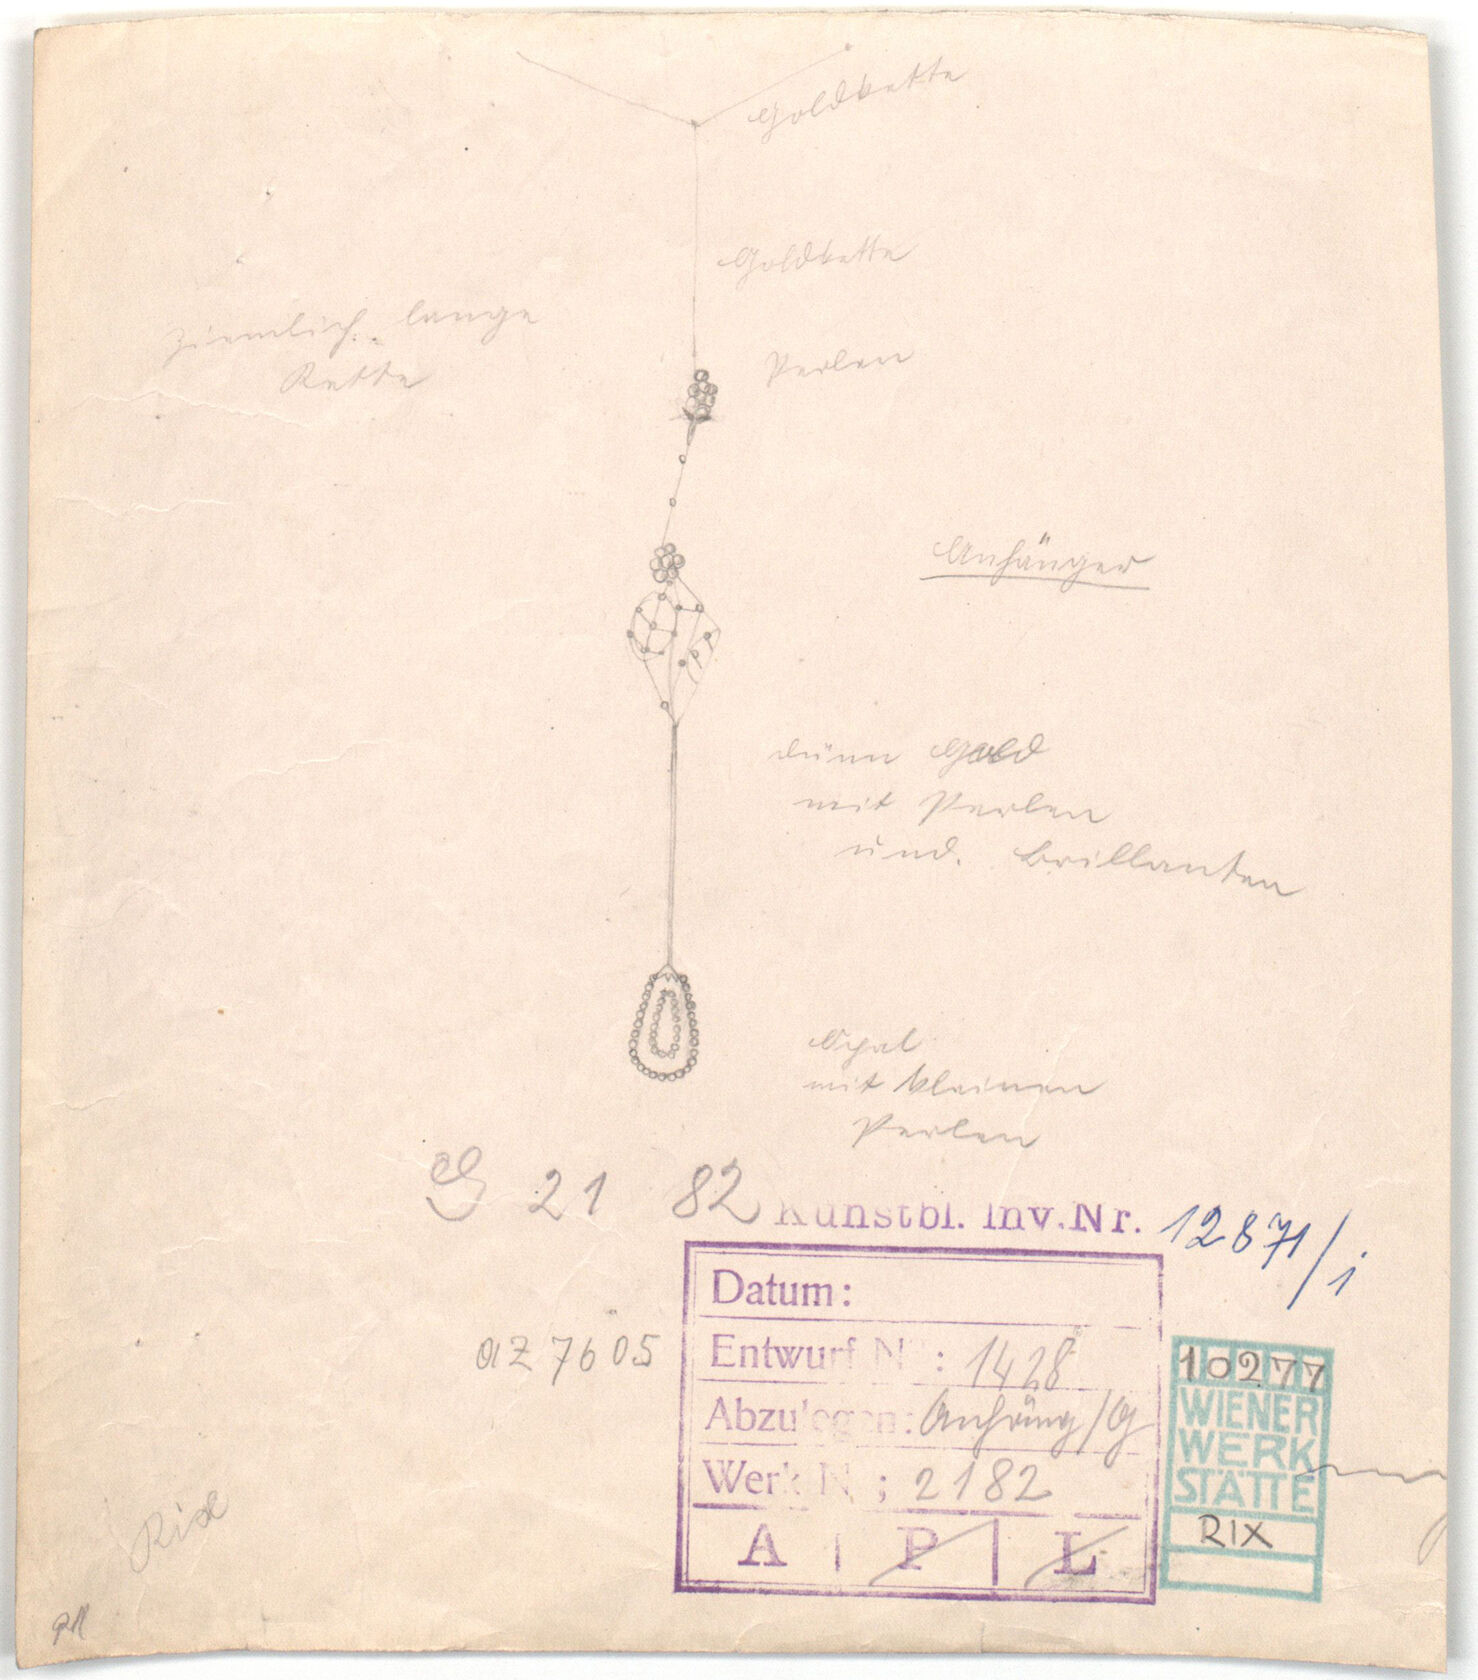 Goldkette
Goldkette
ziemlich lange
Kette
Perlen
Anhänger
dünn Gold
mit Perlen
und. Brillanten
Opal
mit kleinen
Perlen
G 21 82
Kunstbl. Inv.Nr. 12871/1
Datum:
AZ 7605
Entwurf N: 1428
Abzulegen: Anhäng/G
Werk N; 2182
A P L
10277
WIENER
WERK
STÄTTE
RIX
Rix